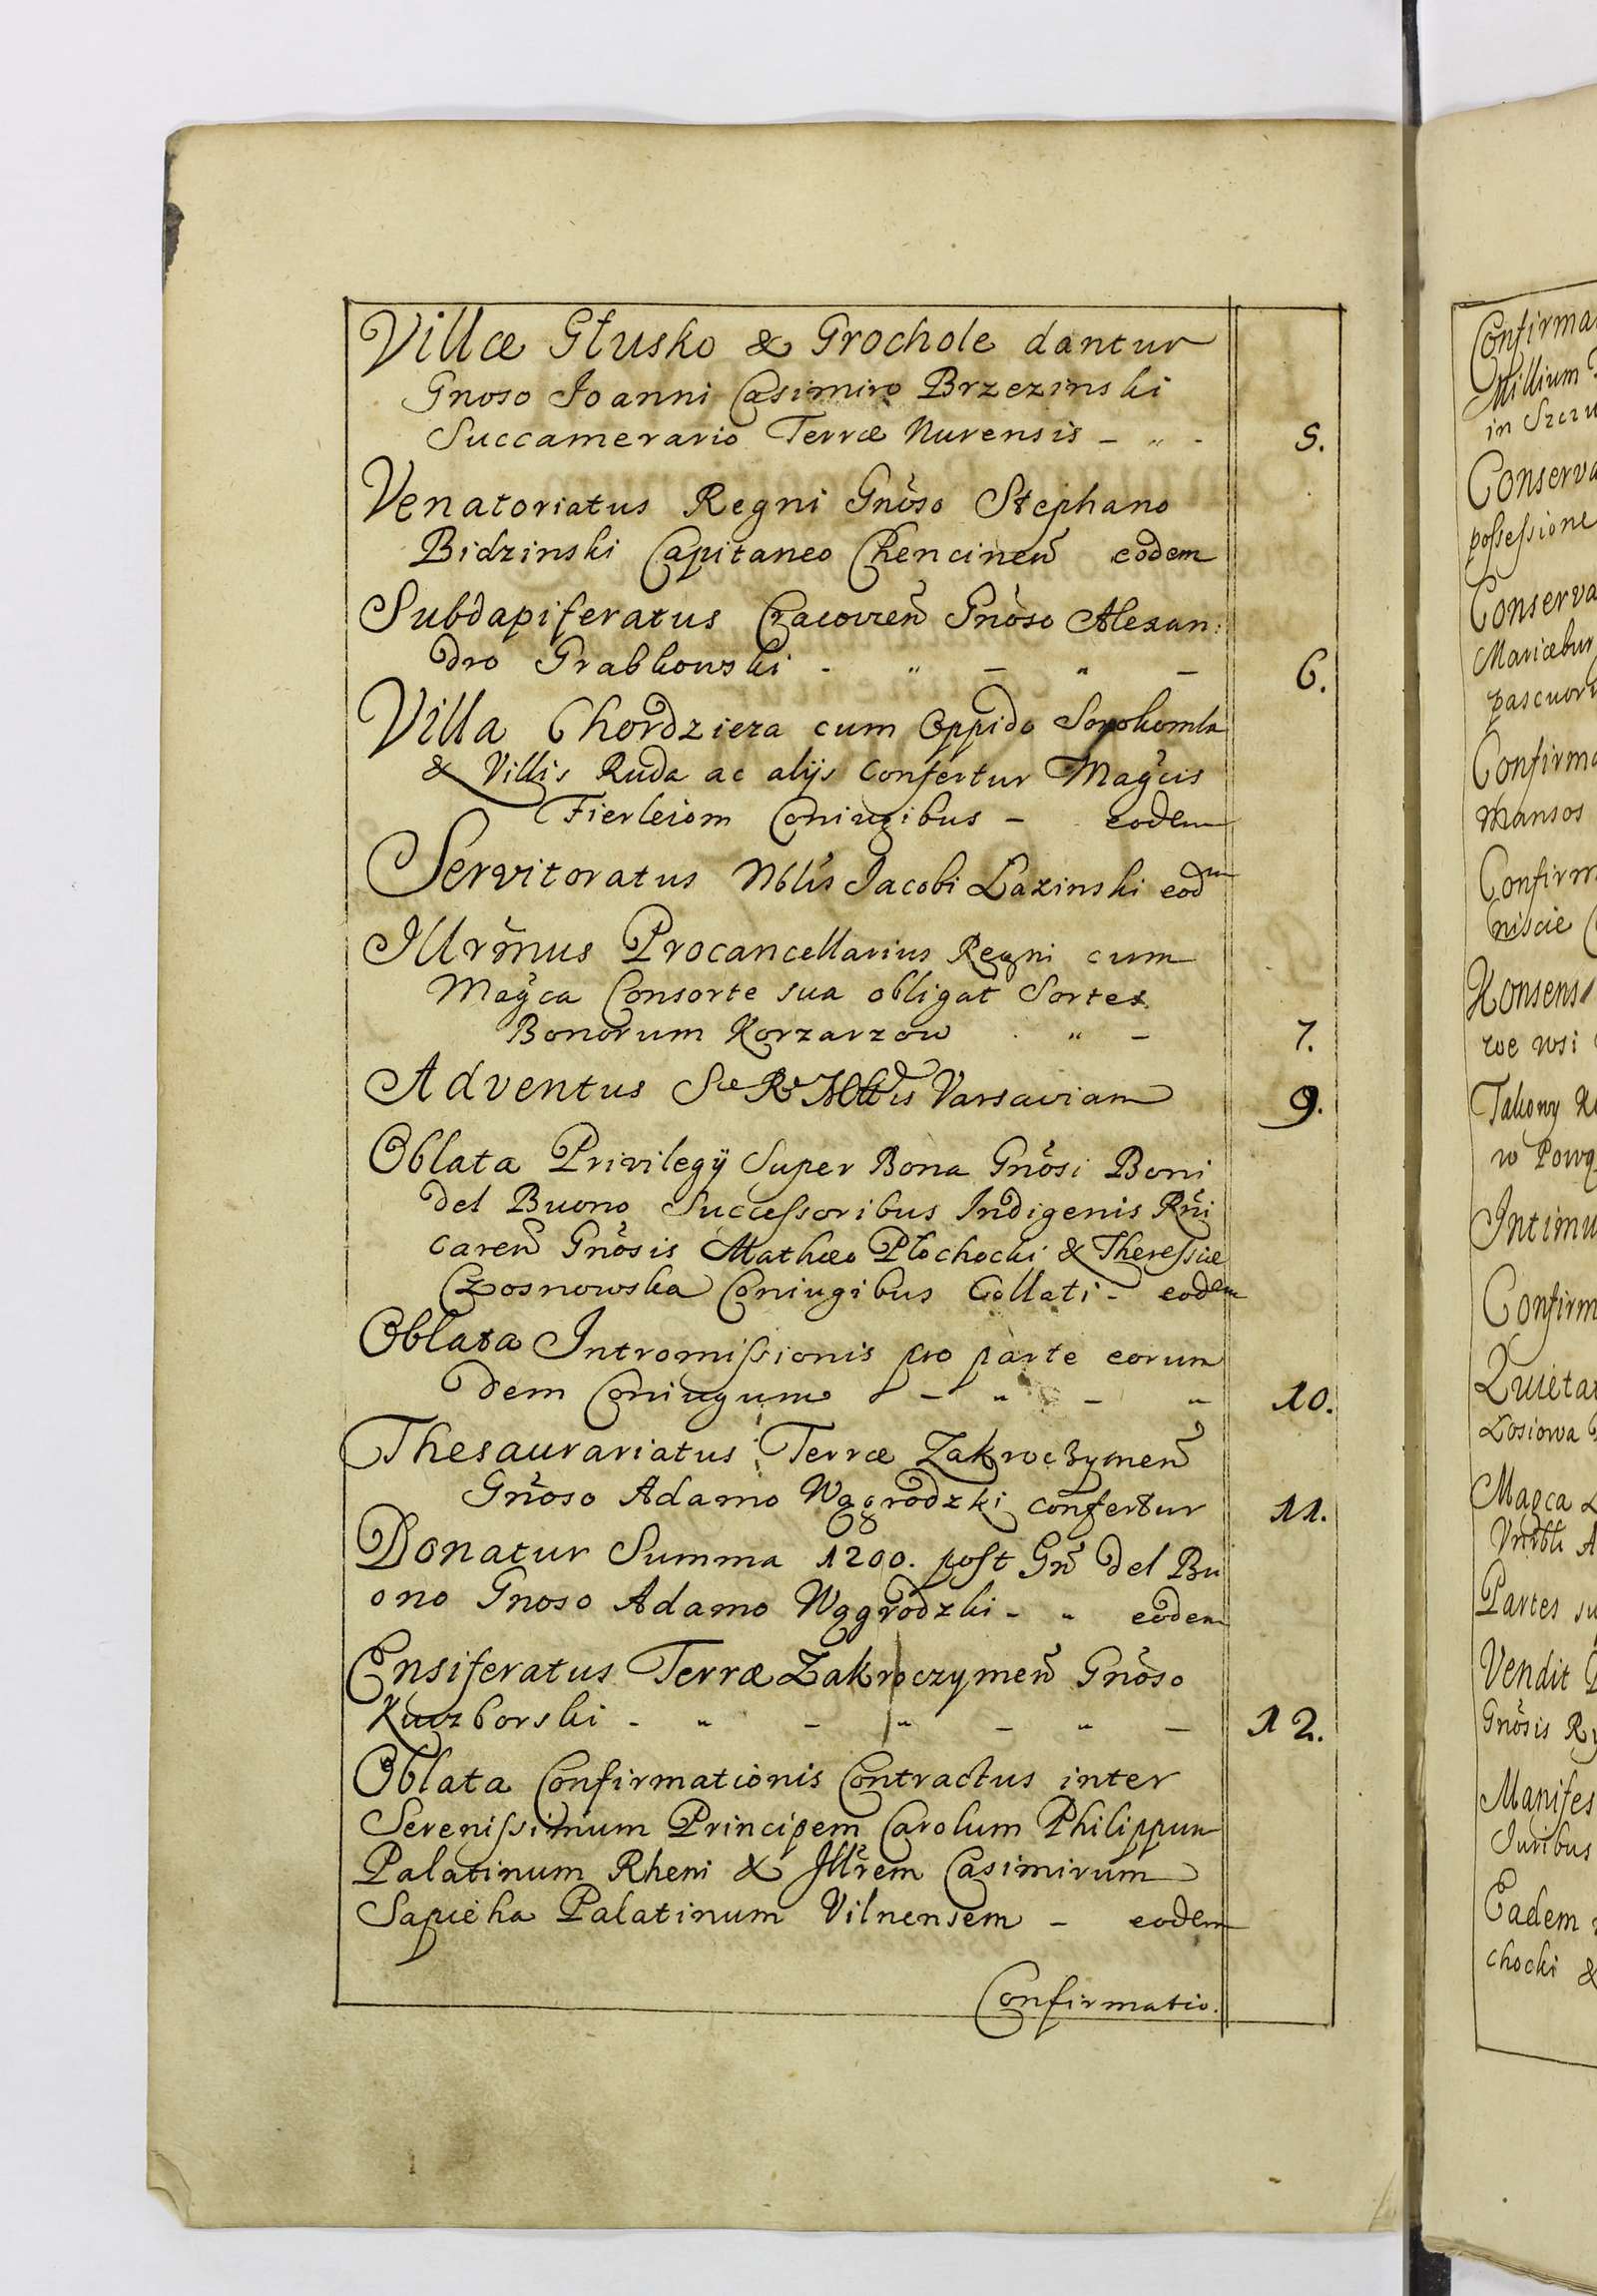 Villæ Głusko & Grochole dantur
Gnoso Joanni Casimiro Brzezinski
Succamerario Terræ Nurensis - " - 5.
Venatoriatus Regni Gnoso Stephano
Bidzinski Capitaneo Chencinen eodem
Subdapiferatus Cracovien Gnoso Alexan:
dro Grabkowski - " - " - 6.
Villa Chordzieza cum Oppido Sorokomla
& Villis Ruda ac alijs Confertur Magcis
Fierleiom Coniugibus - eodem
Servitoratus Nblis Jacobi Lazinski eodm
Illrmus Procancellarius Regni cum
Magca Consorte sua obligat Sortes
Bonorum Korzarzow " - 7.
Adventus Sæ Ræ Mttis Varsaviam 9.
Oblata Privilegij Super Bona Gnosi Boni
del Buono Successoribus Indigenis Rni
caren Gnosis Mathæo Płochocki & Theressiæ
Czosnowska Coniugibus Collati - eodem
Oblata Intromissionis pro parte eorun
dem Coniugum - " - " 10.
Thesaurariatus Terræ Zakroczymen
Gnoso Adamo Wągrodzki confertur 11.
Donatur Summa 1200. post Gn del Bu
ono Gnoso Adamo Wągrodzki - " eodem
Ensiferatus Terræ Zakroczymen Gnoso
Kuczborski - " - " - " - 12.
Oblata Confirmationis Contractus inter
Serenissimum Principem Carolum Philippum
Palatinum Rheni & Illrem Casimirum
Sapieha Palatinum Vilnensem - eodem
Confirmatio.
Confirma
Millium
in Szczu
Conserva
possessione
Conserva
Mariæbur
pascuor
Confirma
Mansos
Confirm
niscie
Konsens
we wsi
Takowy
w Pową
Intimu
Confirm
Quietat
Łosiowa
Magca
Partes su
Vendit
Gnosis Ry
Manifes
Juribus
Eadem
chocki &